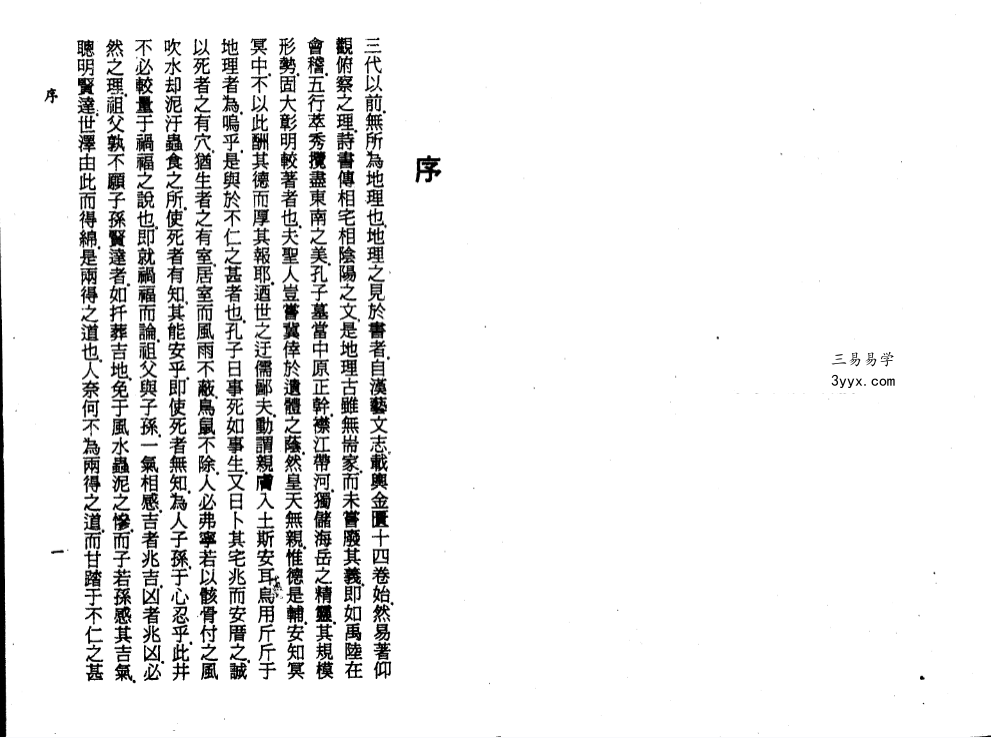 序
三代以前.無所為地理也.地理之見於書者.自漢藝文志.載輿金匱十四卷始.然易著仰
觀俯察之理.詩書傳相宅相陰陽之文.是地理古雖無耑家.而未嘗廢其義.即如禹陸在
會稽.五行萃秀.攬盡東南之美.孔子墓當中原正幹.襟江帶河.獨儲海岳之精靈.其規模
形勢.固大彰明較著者也.夫聖人豈嘗冀倖於遺體之蔭.然皇天無親.惟德是輔.安知冥
冥中.不以此酬其德而厚其報耶.迺世之迂儒鄙夫.動謂親膚入土斯安耳.烏用斤斤于
地理者為.嗚乎.是與於不仁之甚者也.孔子曰事死如事生.又曰卜其宅兆而安厝之.誠
以死者之有穴.猶生者之有室.居室而風雨不蔽.鳥鼠不除.人必弗寧.若以骸骨付之風
吹水却泥汙蟲食之所.使死者有知.其能安乎.即使死者無知.為人子孫.于心忍乎.此井
不必較量于禍福之說也.即就禍福而論.祖父與子孫.一氣相感.吉者兆吉.凶者兆凶.必
然之理.祖父孰不願子孫賢達者.如扦葬吉地.免于風水蟲泥之慘.而子若孫感其吉氣.
聰明賢達.世澤由此而得綿.是兩得之道也.人奈何不為兩得之道.而甘踏于不仁之甚
序
一
三易易学
3yyx.com